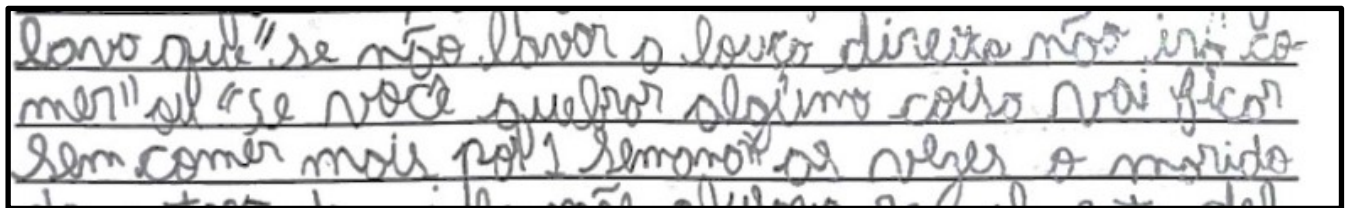 lavo que "se não lavar a louça direito não irá co-
mer" ou "se você quebrar alguma coisa vai ficar
sem comer mais por 1 semana" as vezes o marido